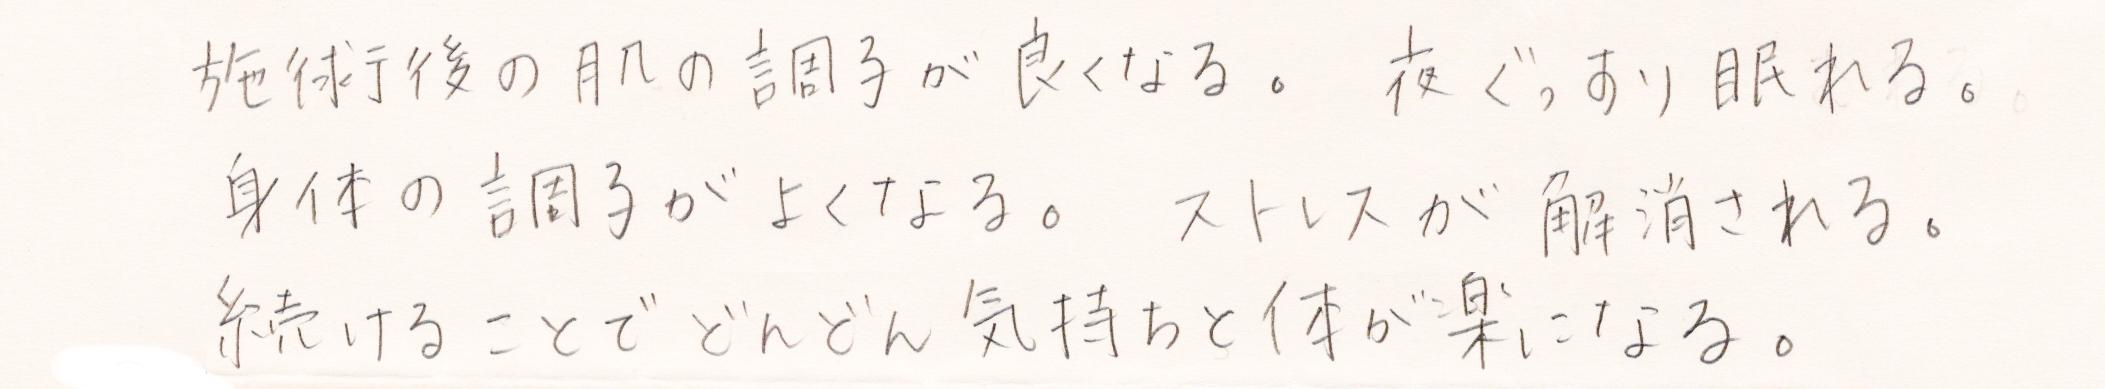 施術後の肌の調子が良くなる。 夜ぐっすり眠れる。
身体の調子がよくなる。 ストレスが解消される。
続けることでどんどん気持ちと体が楽になる。